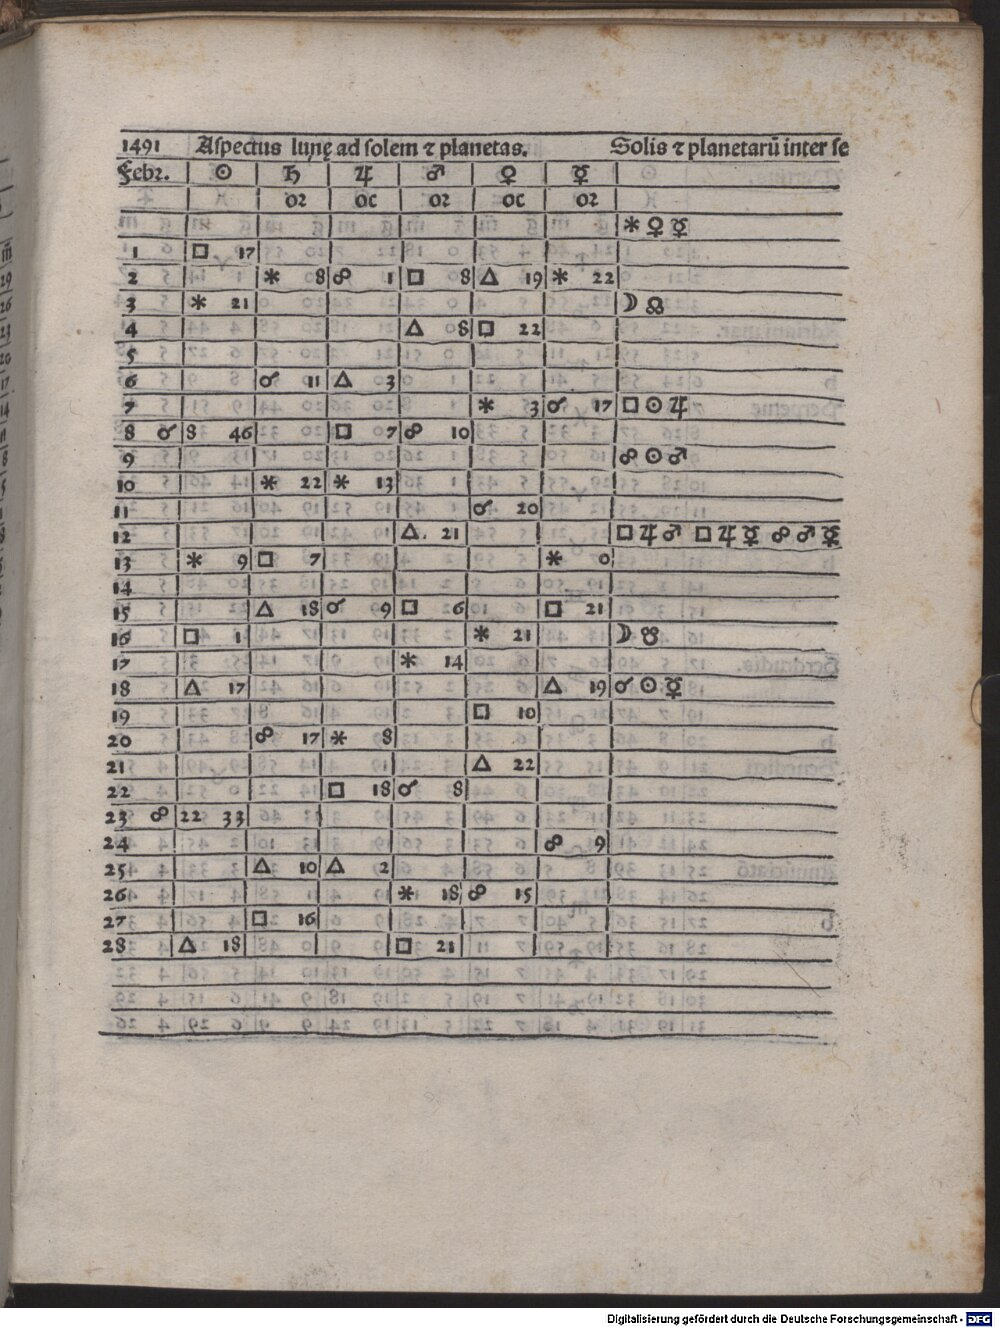 1491 Aspectus lunę ad solem ⁊ planetas. Solis ⁊ planetarū inter se
Febꝛ. ☉ ♄ ♃ ♂ ♀ ☿
oꝛ oc oꝛ oc oꝛ
⚹ ♀ ☿
1 □ 17
2 ⚹ 8 ☍ 1 □ 8 △ 19 ⚹ 22
3 ⚹ 21 ☽ ☊
4 △ 8 □ 22
5
6 ☌ 11 △ 3
7 ⚹ 3 ☌ 17 □ ☉ ♃
8 ☌ 8 46 □ 7 ☍ 10
9 ☍ ☉ ♂
10 ⚹ 22 ⚹ 13
11 ☌ 20
12 △. 21 □ ♃ ♂ □ ♃ ☿ ☍ ♂ ☿
13 ⚹ 9 □ 7 ⚹ 0
14
15 △ 18 ☌ 9 □ 6 □ 21
16 □ 1 ⚹ 21 ☽ ☋
17 ⚹ 14
18 △ 17 △ 19 ☌ ☉ ☿
19 □ 10
20 ☍ 17 ⚹ 8
21 △ 22
22 □ 18 ☌ 8
23 ☍ 22 33
24 ☍ 9
25 △ 10 △ 2
26 ⚹ 18 ☍ 15
27 □ 16
28 △ 18 □ 21
Digitalisierung gefördert durch die Deutsche Forschungsgemeinschaft - DFG